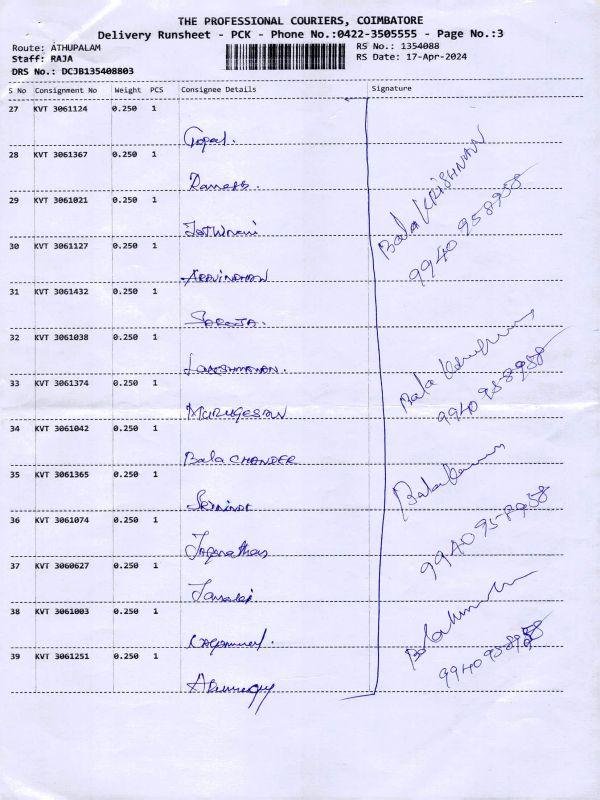 THE PROFESSIONAL COURIERS, COIMBATORE
Delivery Runsheet - PCK - Phone No.:0422-3505555 - Page No.:3
Route: ATHUPALAM RS No.: 1354088
Staff: RAJA RS Date: 17-Apr-2024
DRS No.: DCJB135408803
S No Consignment No Weight PCS Consignee Details Signature
27 KVT 3061124 0.250 1
Gopal.
28 KVT 3061367 0.250 1
Ramesh.
Bala KRISHNAN
29 KVT 3061021 0.250 1
9940 958958
30 KVT 3061127 0.250 1
ARAVINDHAN
31 KVT 3061432 0.250 1
SAROJA.
32 KVT 3061038 0.250 1
LAKSHMANAN.
33 KVT 3061374 0.250 1
Bala
9940 958958
MURUGESAN
34 KVT 3061042 0.250 1
Bala CHANDER
35 KVT 3061365 0.250 1
36 KVT 3061074 0.250 1
9940 958958
Jaganathan
37 KVT 3060627 0.250 1
38 KVT 3061003 0.250 1
9940 958958
39 KVT 3061251 0.250 1